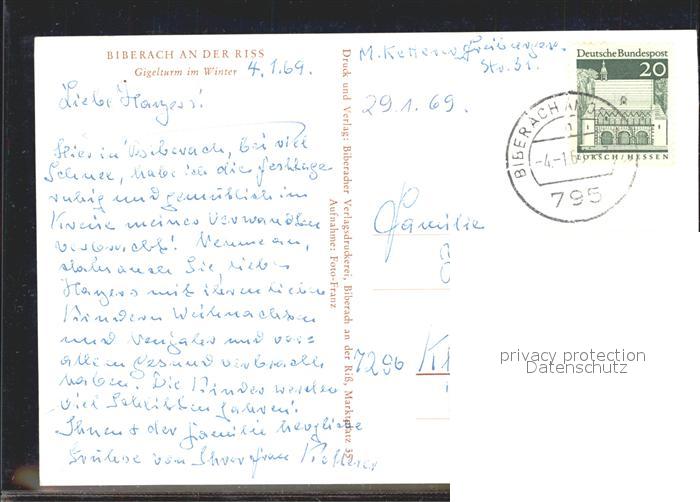 BIBERACH AN DER RISS
Gigelturm im Winter 4.1.69.
Liebe
Hier in Biberach, bei viel
Schnee, habe ich die Festtage
ruhig und gemütlich im
Kreise meiner Verwandten
verbracht!
Sie, liebe
mit ihren lieben
Kindern Weihnachten
und Neujahr und vor=
allem gesund verbracht
haben. Die Kinder werden
viel Schlitten fahren.
Ihnen & der Familie herzliche
Grüsse von Ihrer Frau
Druck und Verlag: Biberacher Verlagsdruckerei, Biberach an der Riß, Marktplatz 35
Aufnahme: Foto-Franz
M.
Str. 31.
29.1.69.
Familie
7290
Deutsche Bundespost
20
LORSCH/HESSEN
BIBERACH AN D
-4.-1.6
795
privacy protection
Datenschutz